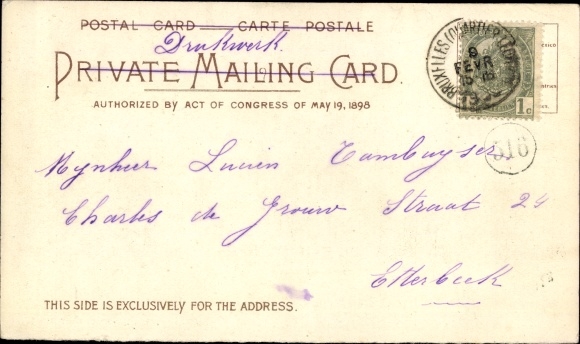 POSTAL CARD — CARTE POSTALE
Drukwerk.
PRIVATE MAILING CARD.
AUTHORIZED BY ACT OF CONGRESS OF MAY 19, 1898
BRUXELLES (QUARTIER
9
FEVR
1c
316
Mynheer Lucien Tambuyser
Charles de Grouw Straat 24
Etterbeek
THIS SIDE IS EXCLUSIVELY FOR THE ADDRESS.